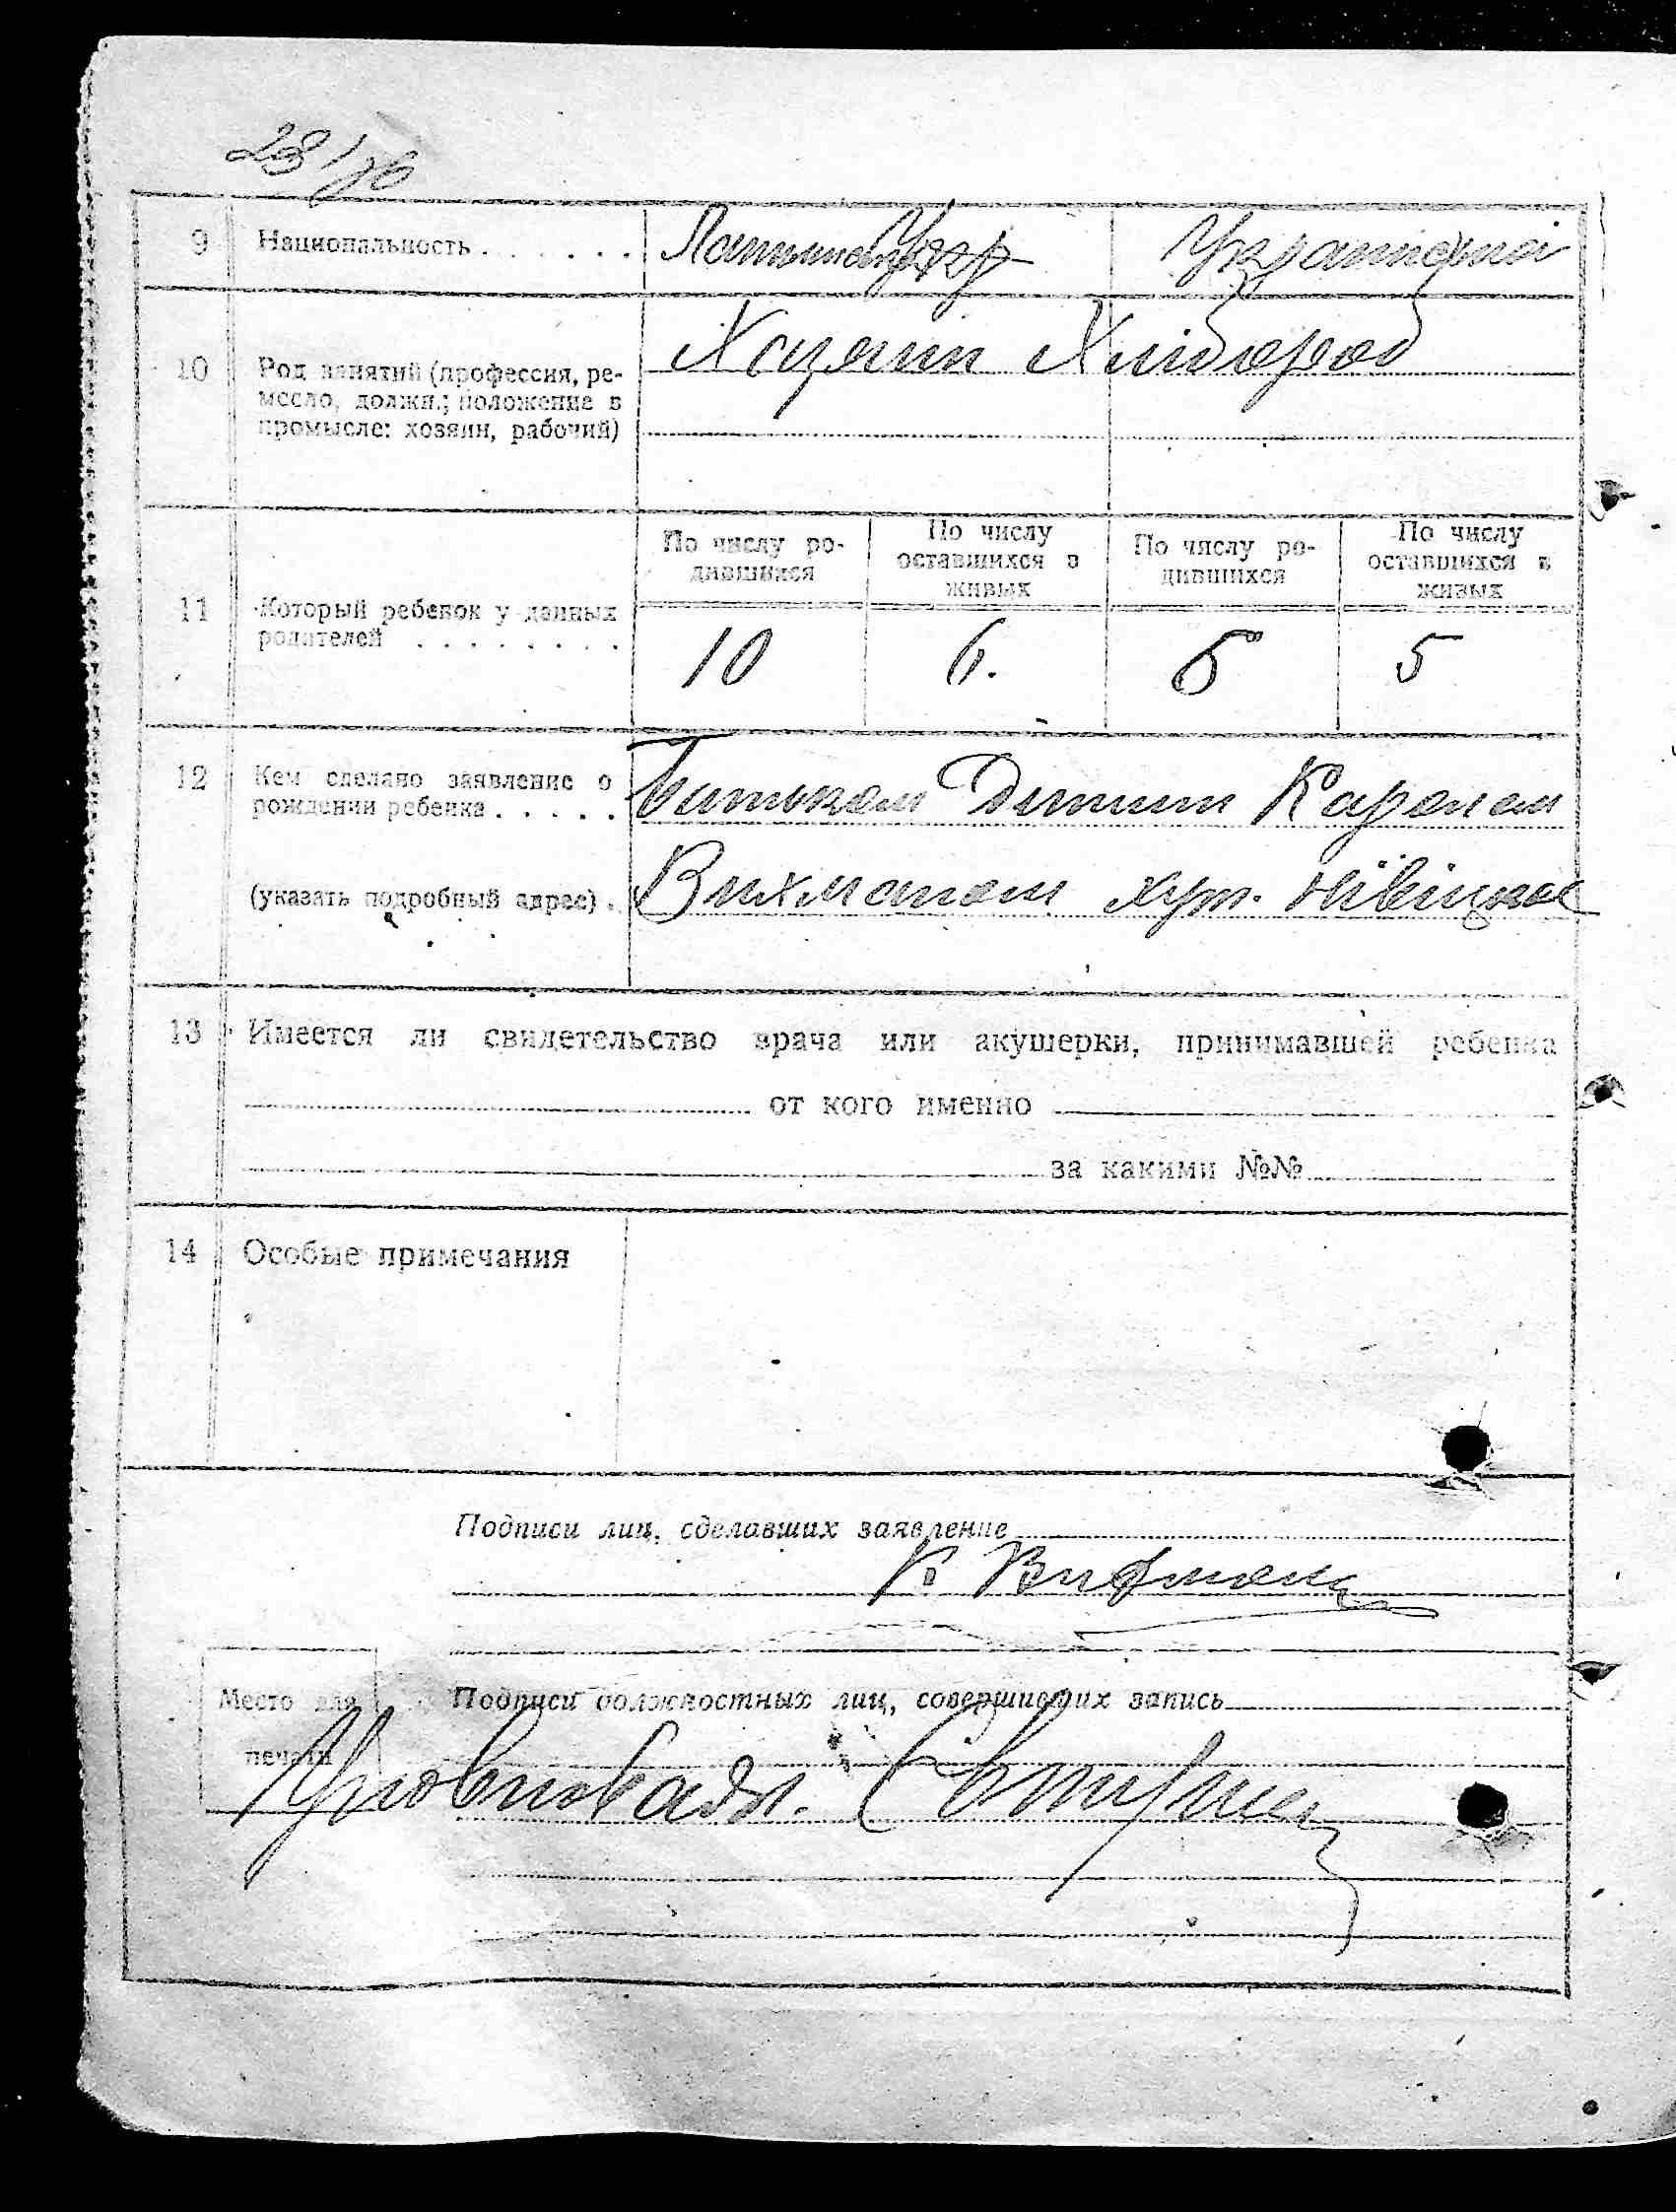 9 Национальность . . . . . . . Украинской
10 Род занятий (профессия, ре-
месло, должн.; положение в
промысле: хозяин, рабочий)
Хозяин Хлібороб
11 Который ребенок у данных
родителей . . . . . . . .
По числу ро-
дившихся
По числу
оставшихся в
живых
По числу ро-
дившихся
По числу
оставшихся в
живых
10 6. 5 5
12 Кем сделано заявление о
рождении ребенка . . . . .
Батьком Дитини Каролем
(указать подробный адрес) .
Вихманом хут.
13 Имеется ли свидетельство врача или акушерки, принимавшей ребенка
от кого именно
за какими №№
14 Особые примечания
Подписи лиц, сделавших заявление
К Вихман
Место для
печати
Подписи должностных лиц, совершивших запись